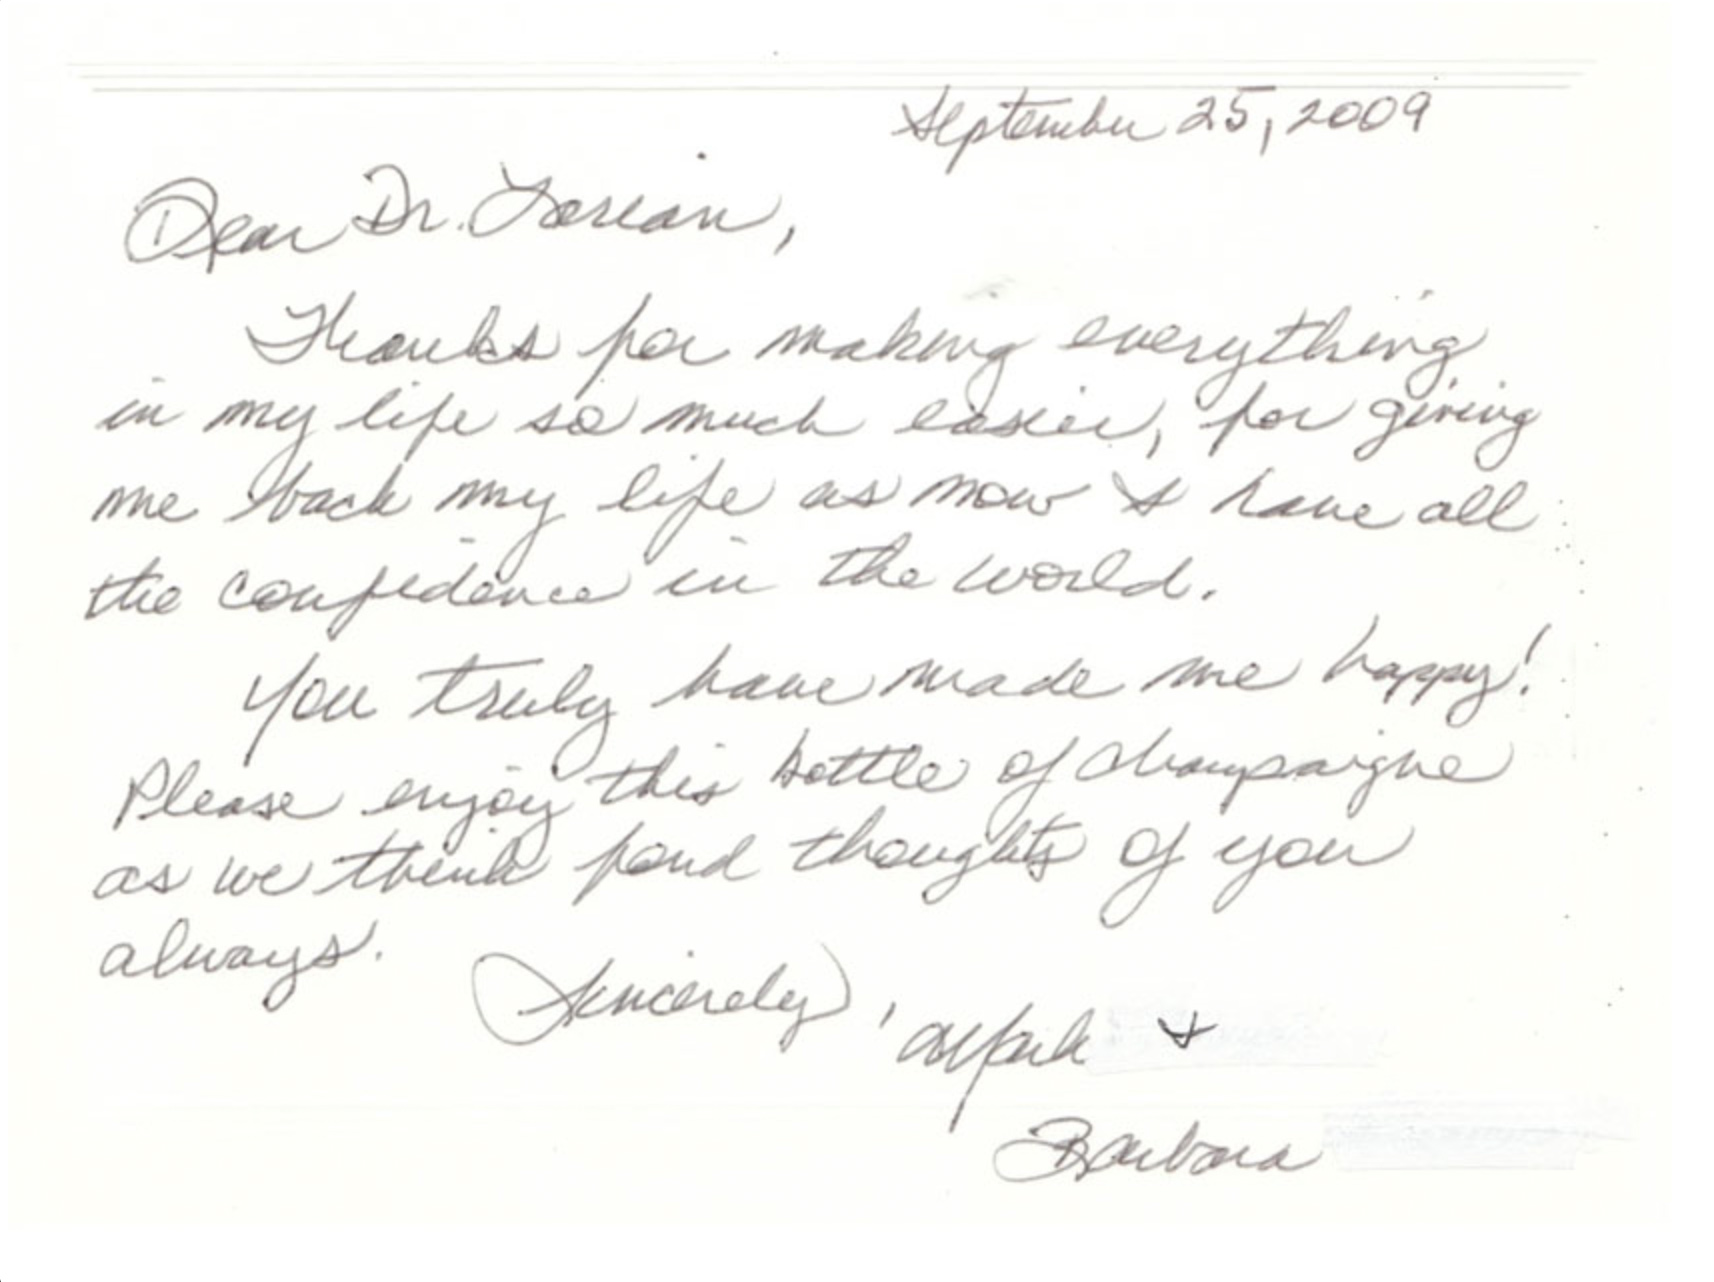 September 25, 2009
Dear Dr. Lorean,
Thanks for making everything
in my life so much easier, for giving
me back my life as now I have all
the confidence in the world.
You truly have made me happy!
Please enjoy this bottle of champaigne
as we think fond thoughts of you
always.
Sincerely,
Mark &
Barbara